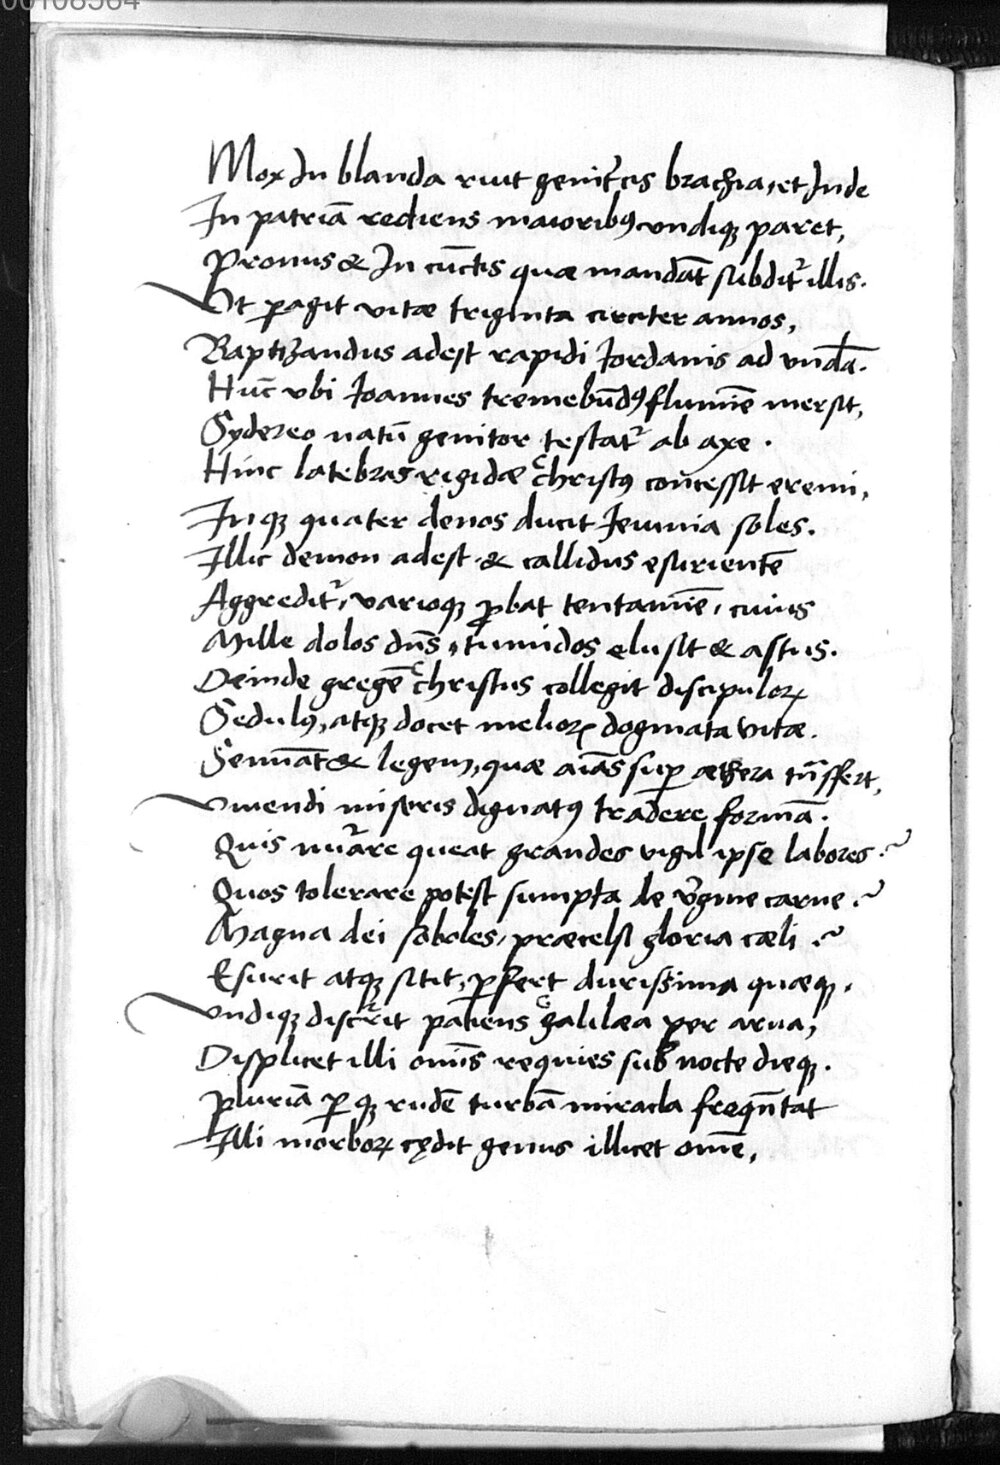 00108564
Mox In blanda ruit genit̃cis brachia, et Inde
In patriã rediens maioribꝰ vndiqꝫ paret,
Pronus & In cũctis quæ mandãt subdit᷑ illis.
Vt ꝑagit vitæ triginta circiter annos,
Baptizandus adest rapidi Iordanis ad vndã.
Hũc vbi Ioannes tremebũdꝰ flumĩe mersit,
Sydereo natũ genitor testat᷑ ab axe.
Hinc latebras rigidæ christꝰ concessit eremi,
Inqꝫ quater denos ducit Ieiunia soles.
Illic demon adest & callidus esurientẽ
Aggredit᷑, varioqꝫ ꝓbat tentamĩe, cuius
Mille dolos dñs, tumidos elusit & astus.
Deinde gregẽ christus collegit discipuloꝝ
Sedulꝰ, atqꝫ docet melioꝝ dogmata vitæ.
Seruãt & legem, quæ aĩas suꝑ æthera trãsfert,
Viuendi miseris dignatꝰ tradere formã.
Quis nũ᷑are queat grandes vigil ipse labores?
Quos tolerare potest sumpta de v̾gine carne?
Magna dei soboles, præcelsi gloria cæli?
Esurit atqꝫ sitit, ꝑfert durissima quæqꝫ.
Vndiqꝫ discr̃it patiens galilæa per arua,
Displicet illi om̃is requies sub nocte dieqꝫ.
Pluriã ꝑqꝫ rudẽ turbã miracla freqũtat
Illi morboꝝ cędit genus illicet om̃e,